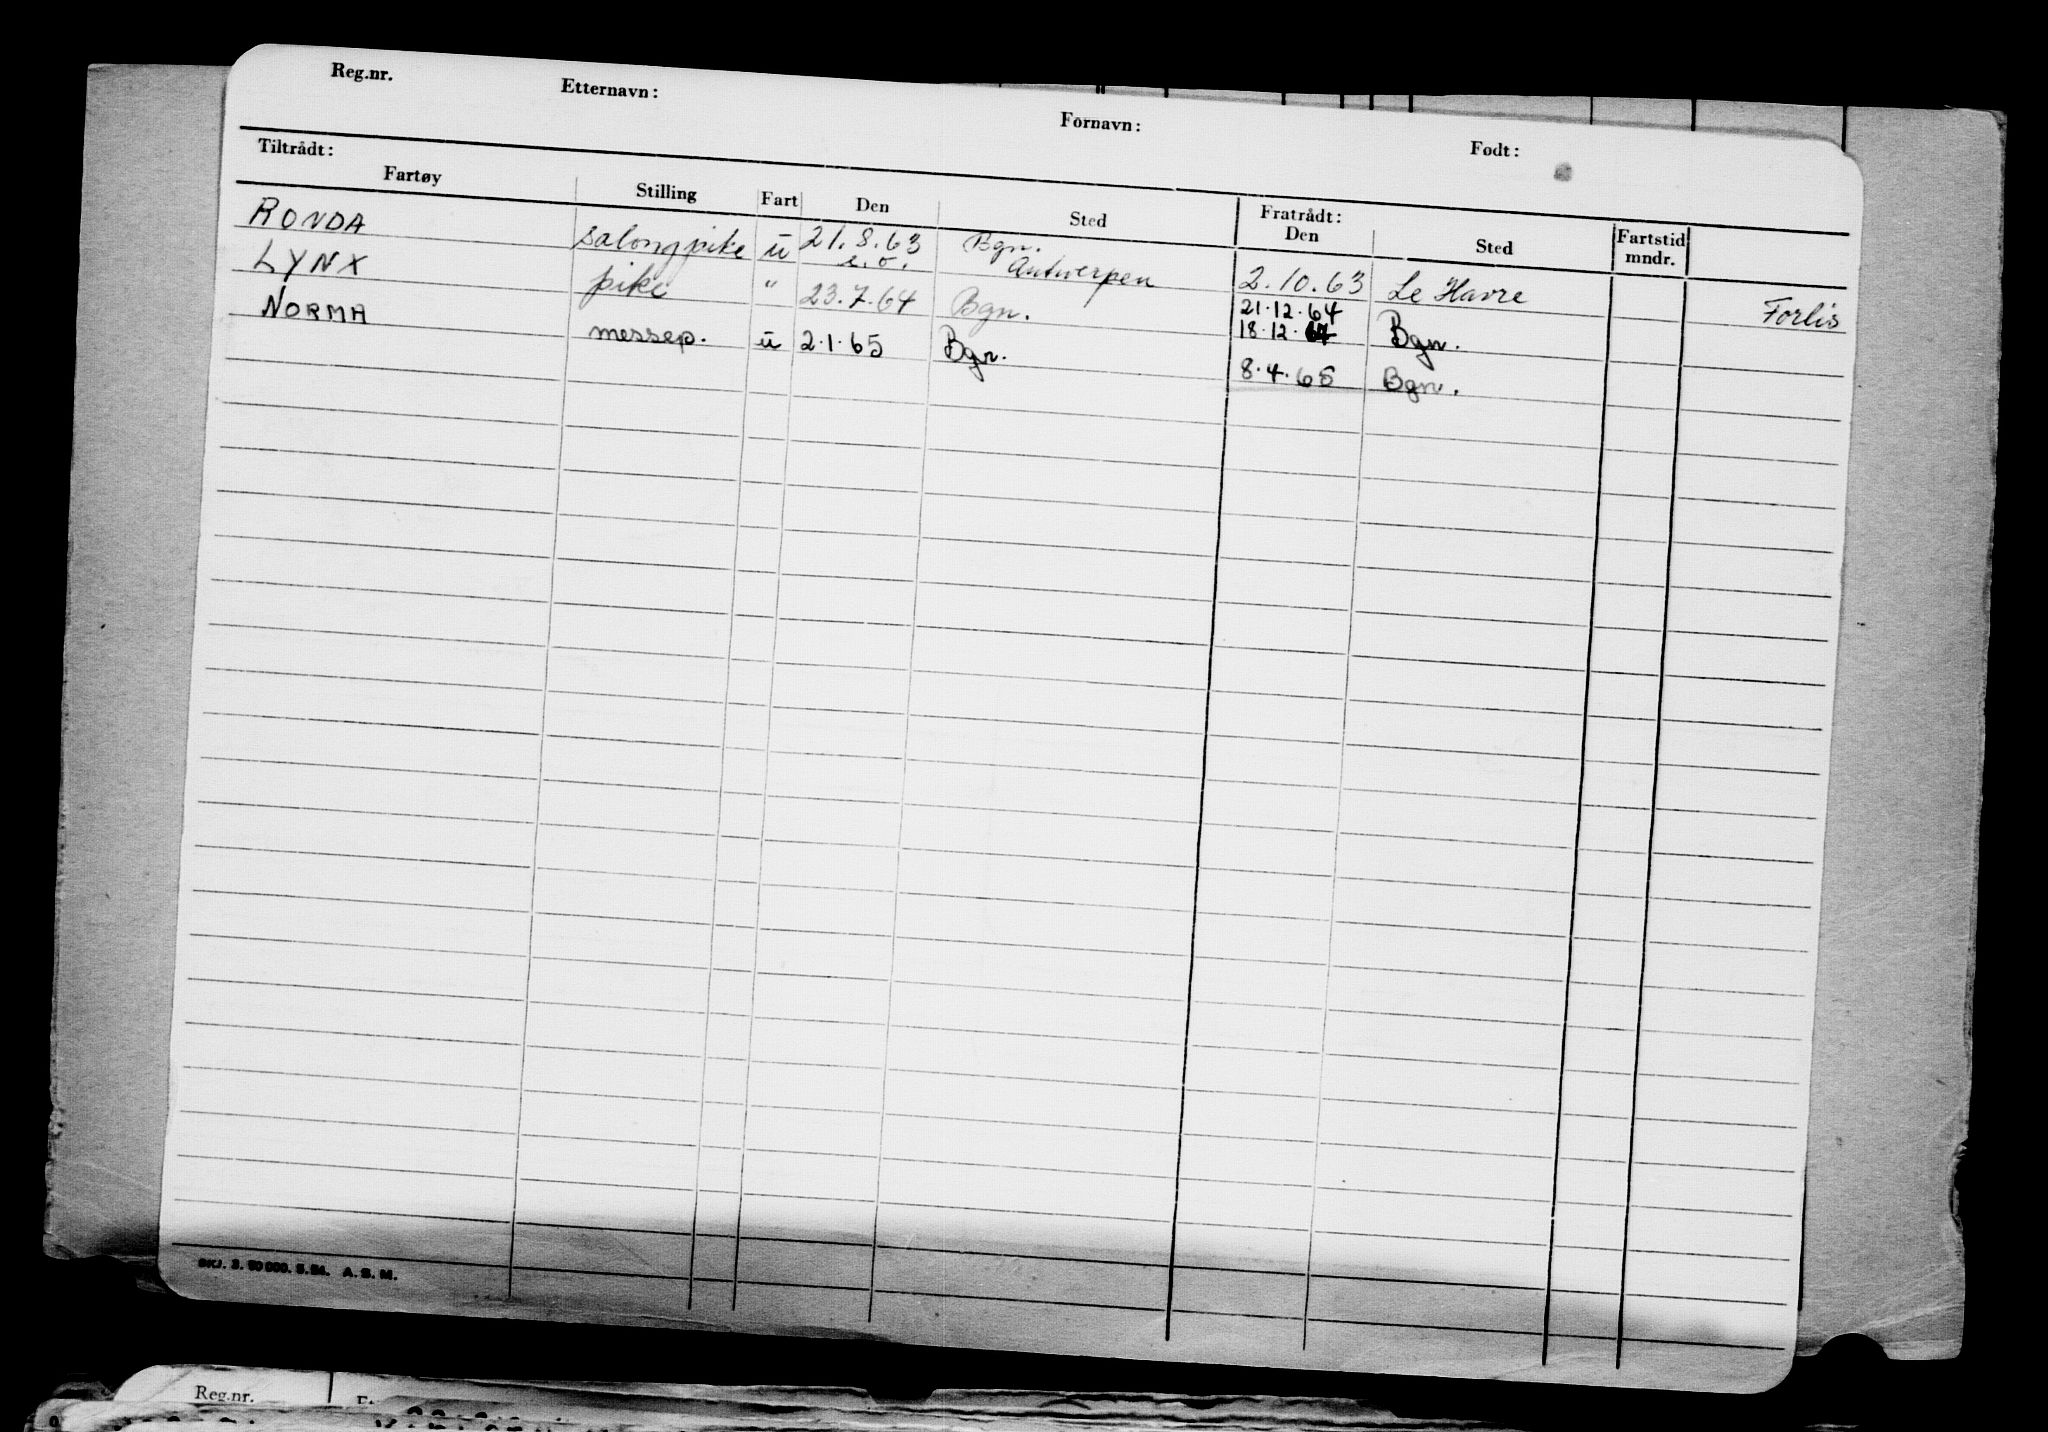 Reg.nr. Etternavn: Fornavn: Født:
Tiltrådt: Fratrådt:
Fartøy Stilling Fart Den Sted Den Sted Fartstid mndr.
RONDA salongpike u 21.8.63 Bgn. 2.10.63 Le Havre Forlis
e.o. Antwerpen
LYNX pike " 23.7.64 Bgn. 21.12.64
18.12.64 Bgn.
NORMA messep. u 2.1.65 Bgn. 8.4.65 Bgn.
A.S.M.
Reg.nr.